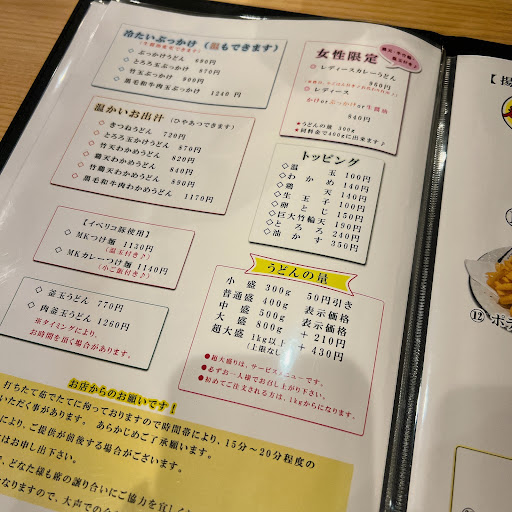 冷たいぶっかけ (温もできます)
◇ ぶっかけうどん 680円
◇ とろろ玉ぶっかけ 870円
◇ 竹玉ぶっかけ 900円
◇ 黒毛和牛肉玉ぶっかけ 1240円
温かいお出汁 (ひやあつできます)
◇ きつねうどん 720円
◇ とろろ昆布うどん 870円
◇ 竹天わかめうどん 820円
◇ 鶏天わかめうどん 840円
◇ 竹鶏天わかめうどん 890円
◇ 黒毛和牛肉わかめうどん 1170円
【イベリコ豚使用】
◇ MKつけ麺 1130円
(温玉付き♪)
◇ MKカレーつけ麺 1140円
(小ご飯付き♪)
◇ 釜玉うどん 770円
◇ 肉釜玉うどん 1260円
※タイミングにより、
お時間を頂く場合があります。
女性限定
◎ レディースカレーうどん
960円
◎ レディース
かけorぶっかけor生醤油
860円
♦うどんの量 300g
♦同料金で400gに出来ます♪
トッピング
◇温玉 100円
◇わかめ 140円
◇鶏天 140円
◇生玉子 100円
◇卵とじ 150円
◇巨大竹輪天 190円
◇とろろ 240円
◇油かす 350円
うどんの量
小盛 300g 50円引き
普通盛 400g 表示価格
中盛 500g 表示価格
大盛 800g +210円
超大盛 1kg以上 +430円
(上限なし)
●超大盛りは、サービスメニューです。
●必ずお一人様でお召し上がり下さい。
●初めてご注文される方は、1kgからになります。
お店からのお願いです！
打ちたて茹でたてに拘っておりますので時間帯により、15分～20分程度の
いただく事があります。 あらかじめご了承願います。
により、ご提供が前後する場合がございます。
はお申し出下さい。
、どなた様も席の譲り合いにご協力を宜しく
なりますので、大声での
【揚
⑫ ポテ